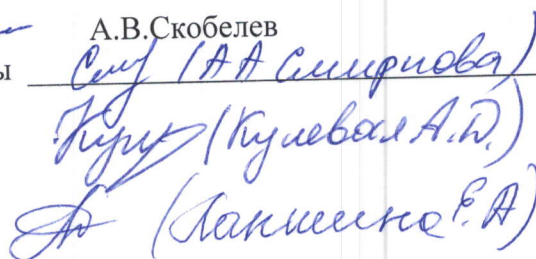 А.В.Скобелев
ы (АА Смирнова)
(Кулевая А.Д.)
(Лакшина Е.А)